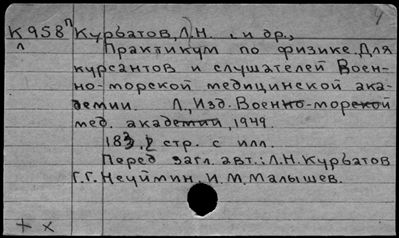 4
К958п Курбатов, Л.Н. , и др.,
Практикум по физике. Для
курсантов и слушателей Воен-
но-морской медицинской ака-
демии. Л., Изд. Военно-морской
мед. академии, 1949.
183, стр. с илл.
Перед загл. авт.: Л.Н. Курбатов
Г.Г. Неуймин, И.М. Малышев.
+ x